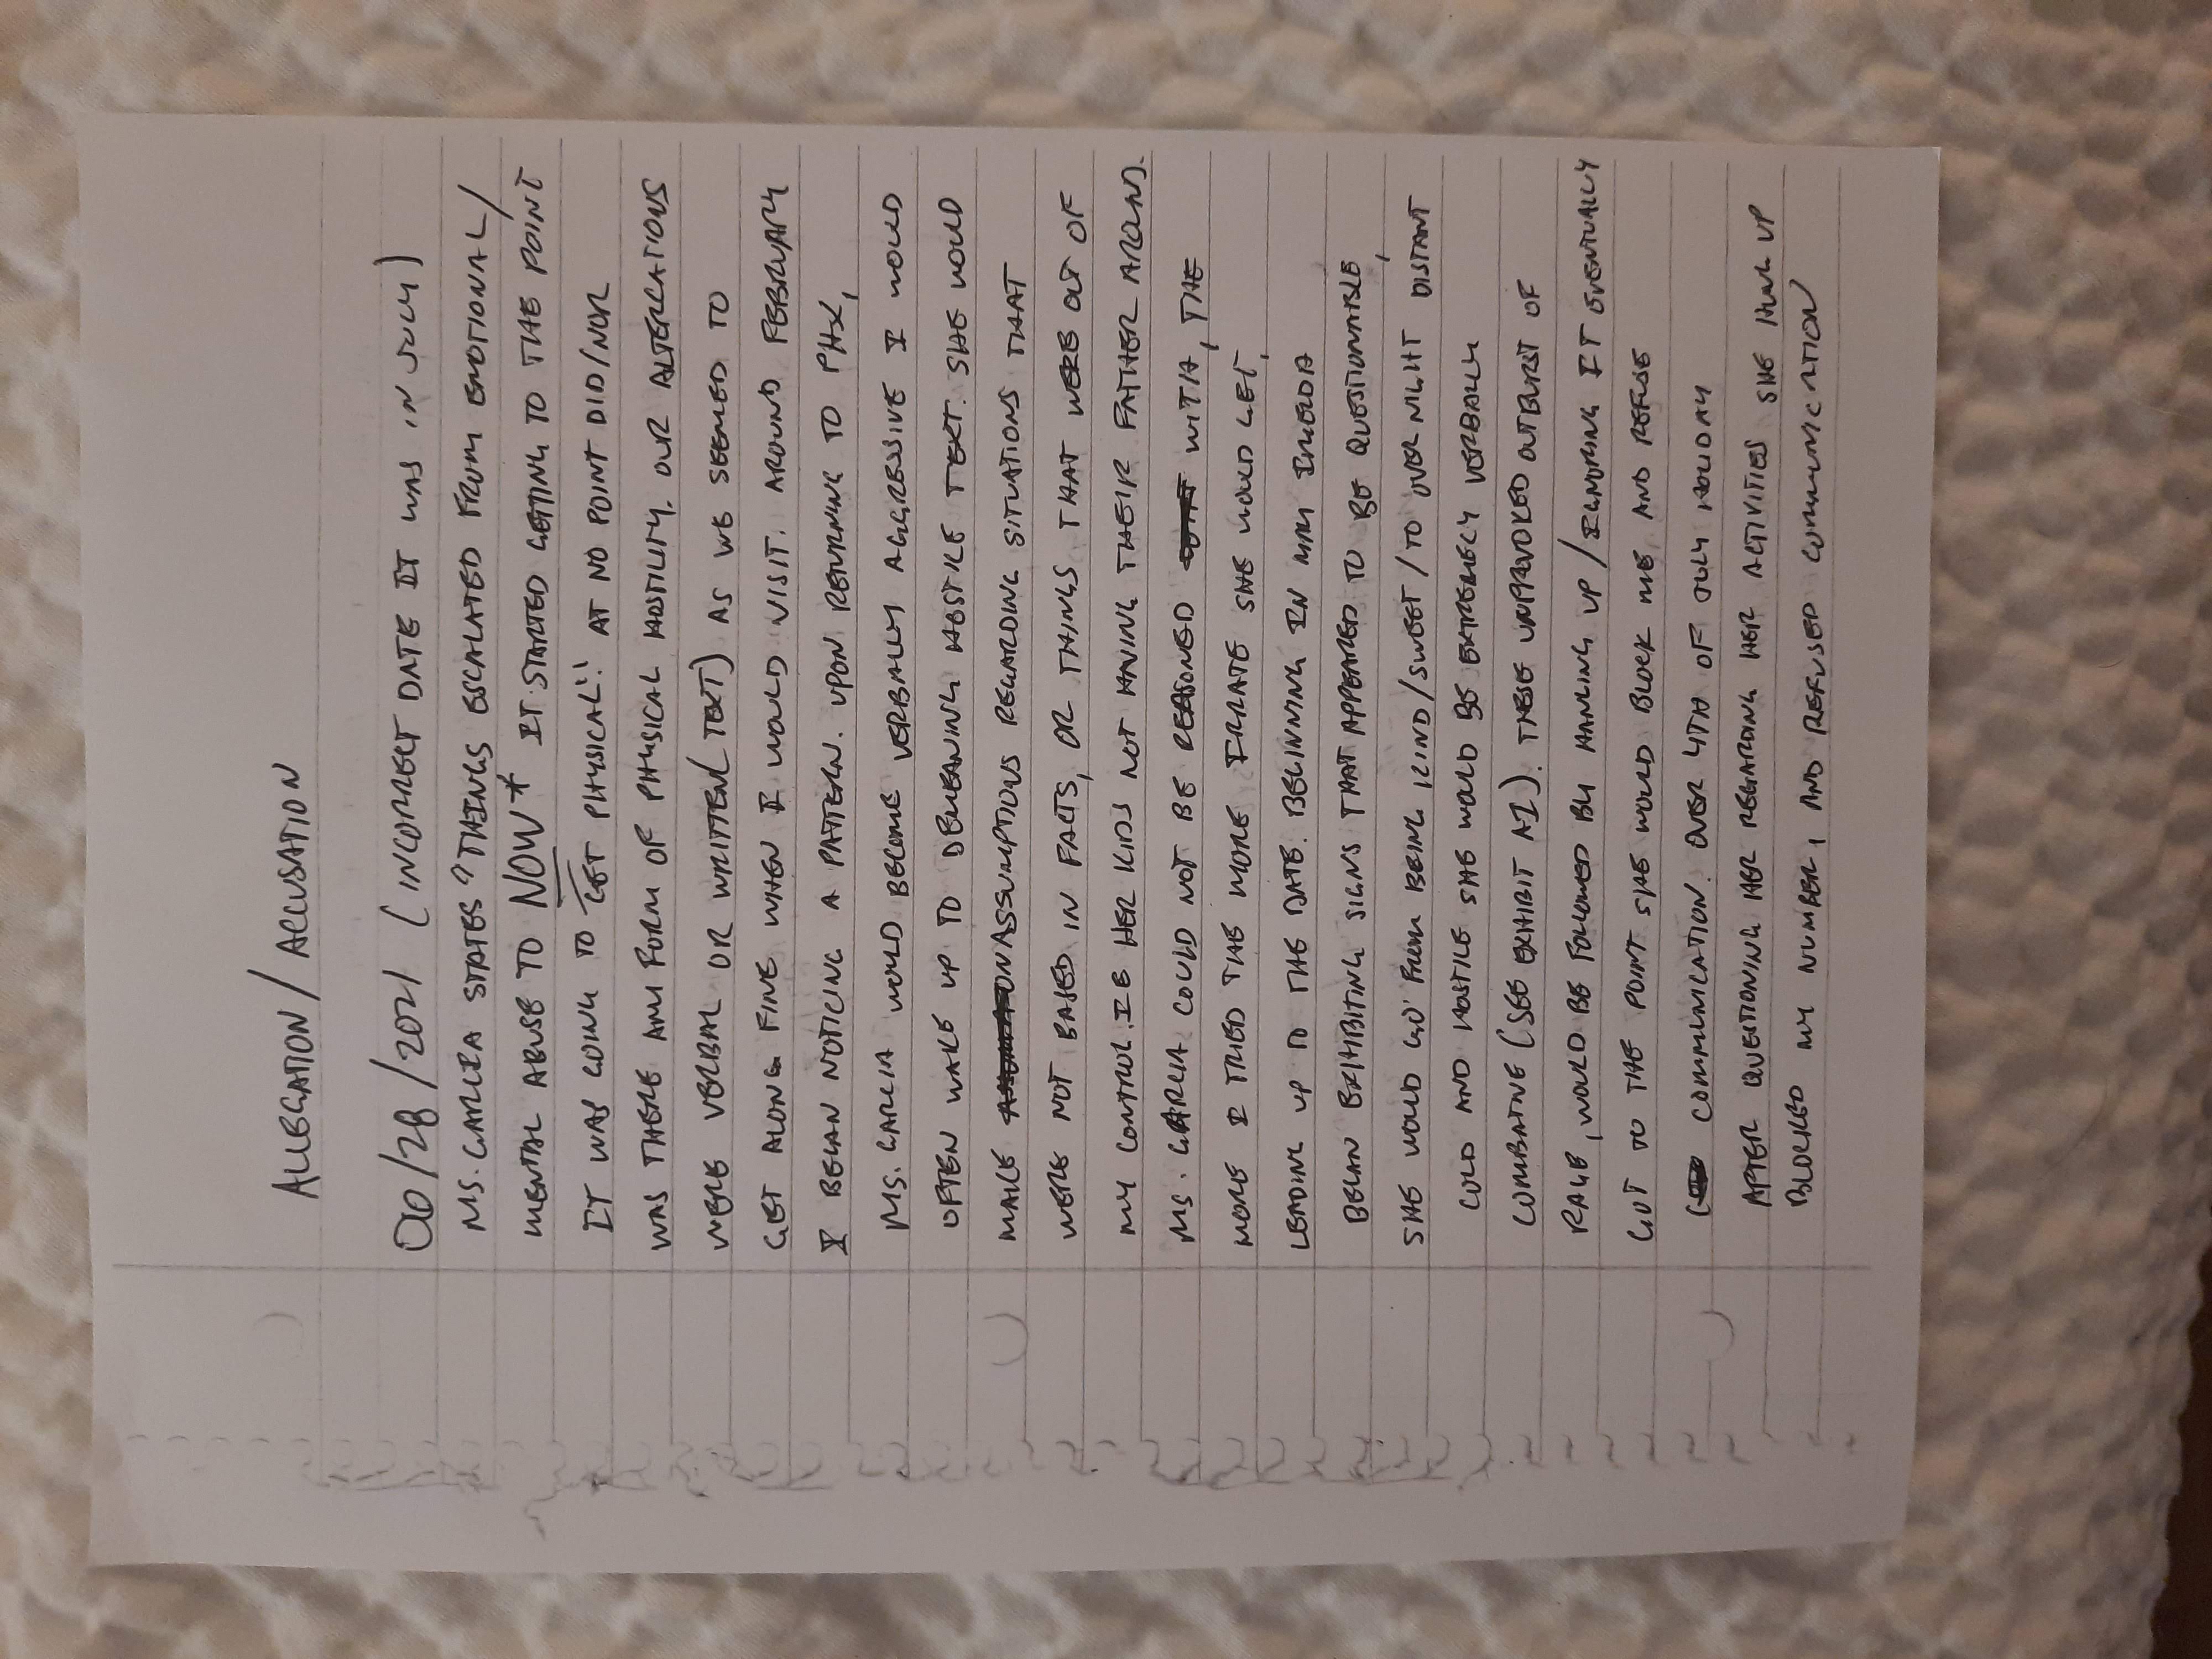 ALLEGATION/ACCUSATION
06/28/2021 (INCORRECT DATE IT WAS IN JULY)
MS. GARCIA STATES "THINGS ESCALATED FROM EMOTIONAL/
MENTAL ABUSE TO NOW* IT STARTED GETTING TO THE POINT
IT WAS GOING TO GET PHYSICAL". AT NO POINT DID/NOR
WAS THERE ANY FORM OF PHYSICAL HOSTILITY. OUR ALTERCATIONS
WERE VERBAL OR WRITTEN (TEXT) AS WE SEEMED TO
GET ALONG FINE WHEN I WOULD VISIT. AROUND FEBRUARY
I BEGAN NOTICING A PATTERN. UPON RETURNING TO PHX,
MS. GARCIA WOULD BECOME VERBALLY AGGRESSIVE I WOULD
OFTEN WAKE UP TO DEMEANING HOSTILE TEXT. SHE WOULD
MAKE ASSUMPTIONS REGARDING SITUATIONS THAT
WERE NOT BASED IN FACTS, OR THINGS THAT WERE OUT OF
MY CONTROL. IE HER KIDS NOT HAVING THEIR FATHER AROUND.
MS. GARCIA COULD NOT BE REASONED WITH, THE
MORE I TRIED THE MORE IRRATE SHE WOULD GET,
LEADING UP TO THE DATE. BEGINNING IN MAY IMELDA
BEGAN EXHIBITING SIGNS THAT APPEARED TO BE QUESTIONABLE,
SHE WOULD GO FROM BEING KIND/SWEET/TO OVER NIGHT DISTANT
COLD AND HOSTILE SHE WOULD BE EXTREMELY VERBALLY
COMBATIVE (SEE EXHIBIT A1). THESE UNPROVOKED OUTBURST OF
RAGE, WOULD BE FOLLOWED BY HANGING UP/IGNORING IT EVENTUALLY
GOT TO THE POINT SHE WOULD BLOCK ME AND REFUSE
COMMUNICATION. OVER 4TH OF JULY HOLIDAY
AFTER QUESTIONING HER REGARDING HER ACTIVITIES SHE HUNG UP
BLOCKED MY NUMBER, AND REFUSED COMMUNICATION